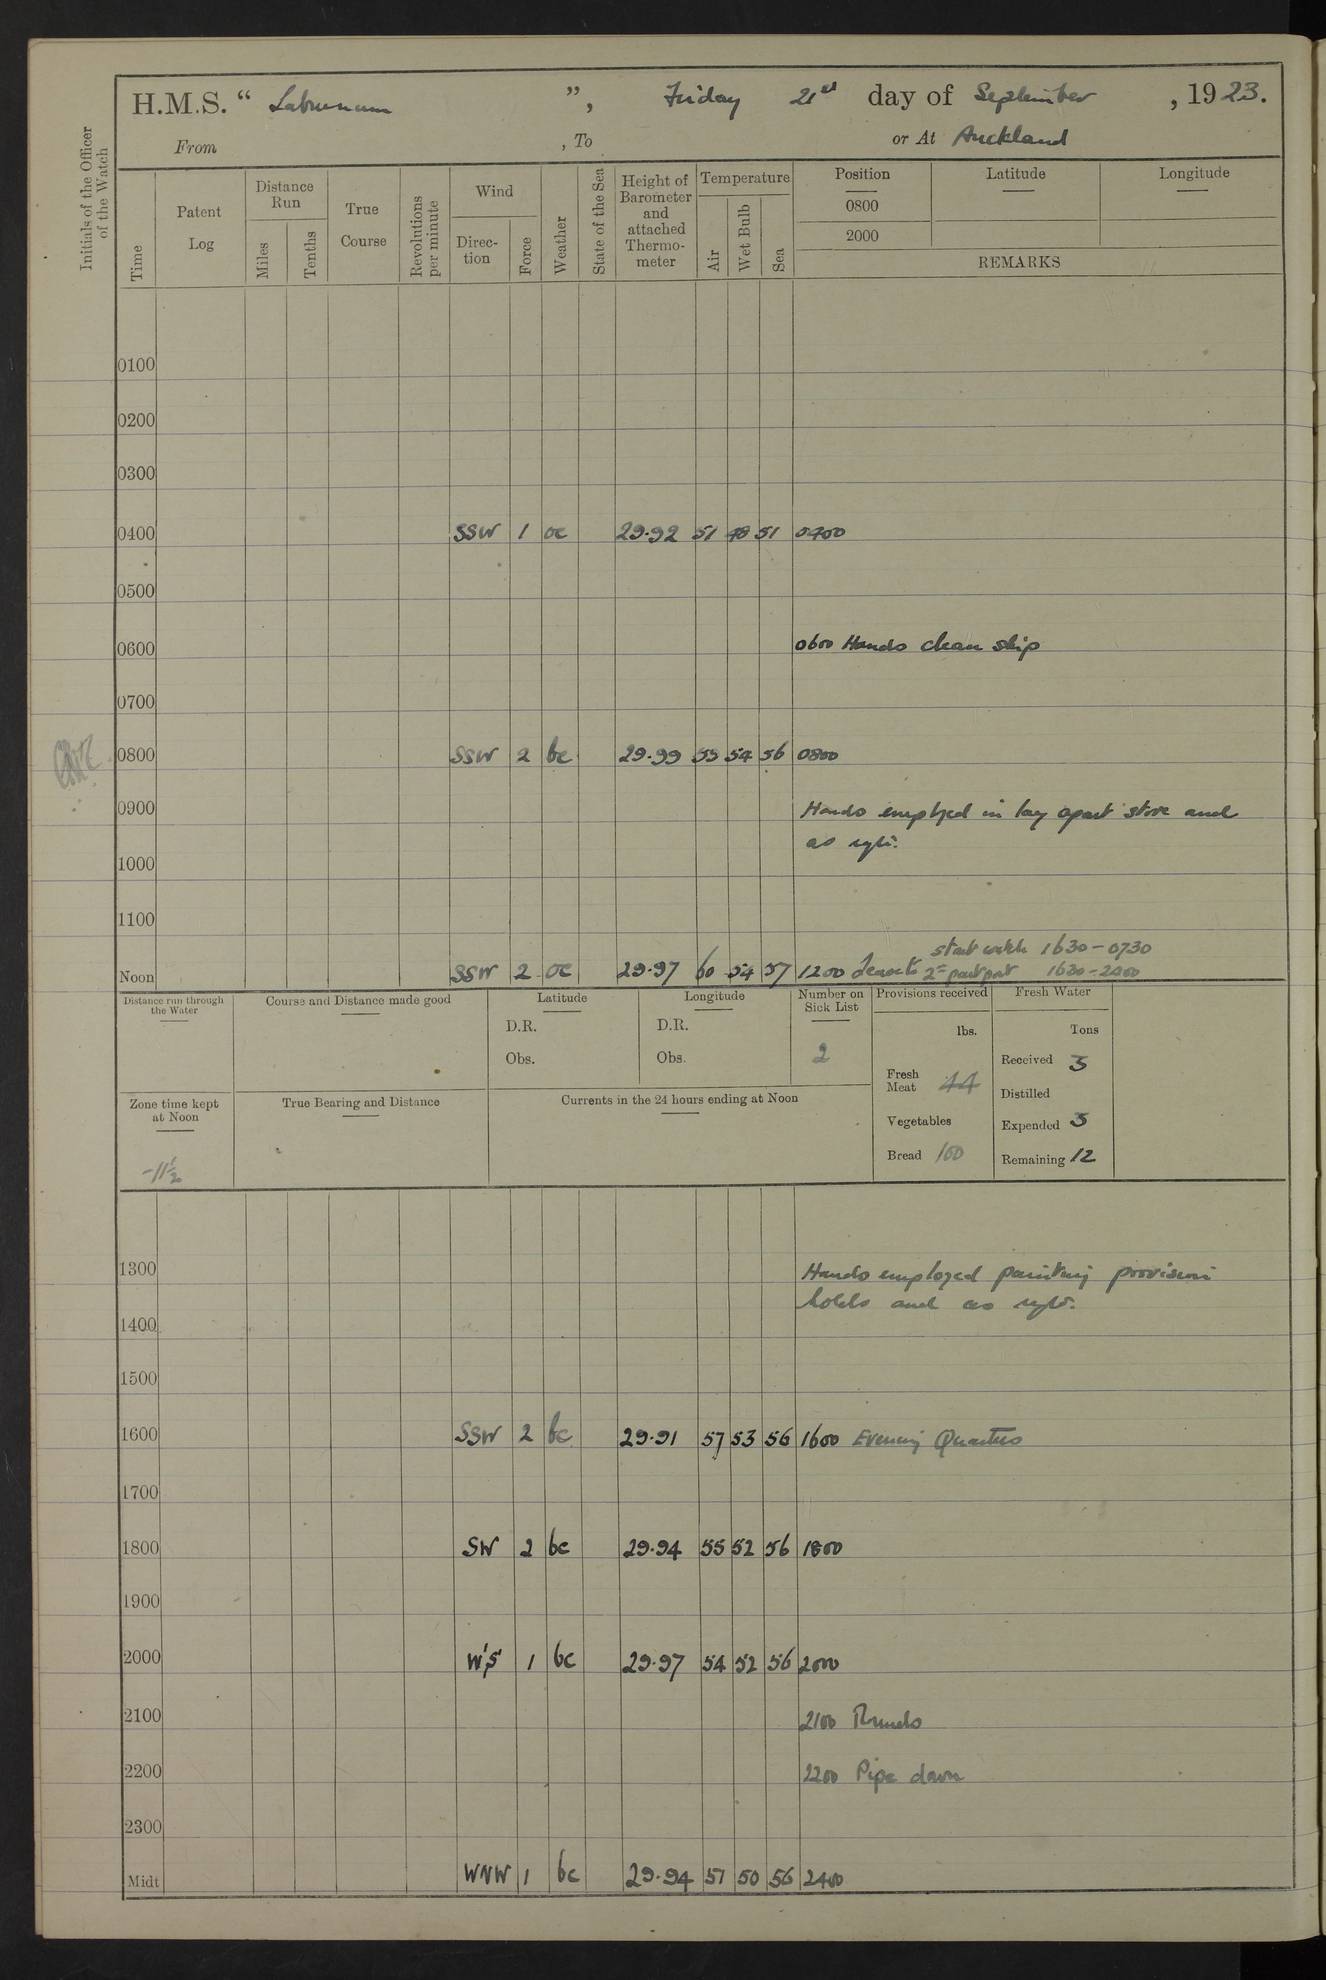 H.M.S. “ Laburnum ”, Friday 21st day of September, 1923.
From , To or At Auckland
Initials of the Officer of the Watch
Time
Patent Log
Distance Run
Miles
Tenths
True Course
Revolutions per minute
Wind
Direc-tion
Force
Weather
State of the Sea
Height of Barometer and attached Thermo-meter
Temperature
Air
Wet Bulb
Sea
Position
0800
2000
Latitude
Longitude
REMARKS
0100
0200
0300
0400 SSW 1 oc 29.92 51 48 51 0400
0500
0600 0600 Hands clean ship
0700
0800 SSW 2 bc 29.99 55 54 56 0800
0900 Hands employed in lay apart store and
as reqte.
1000
1100
start watch 1630-0730
Noon SSW 2 oc 29.97 60 54 57 1200 Leave to 2nd part port 1630-2400
Distance run through the Water
Course and Distance made good
Latitude
D.R.
Obs.
Longitude
D.R.
Obs.
Number on Sick List
2
Provisions received
lbs.
Fresh Meat 44
Vegetables
Bread 100
Fresh Water
Tons
Received 3
Distilled
Expended 3
Remaining 12
Zone time kept at Noon
-11½
True Bearing and Distance
Currents in the 24 hours ending at Noon
1300 Hands employed painting provision
holds and as reqte.
1400
1500
1600 SSW 2 bc 29.91 57 53 56 1600 Evening Quarters
1700
1800 SW 2 bc 29.94 55 52 56 1800
1900
2000 W'S' 1 bc 29.97 54 52 56 2000
2100 2100 Rounds
2200 2200 Pipe down
2300
Midt WNW 1 bc 29.94 51 50 56 2400